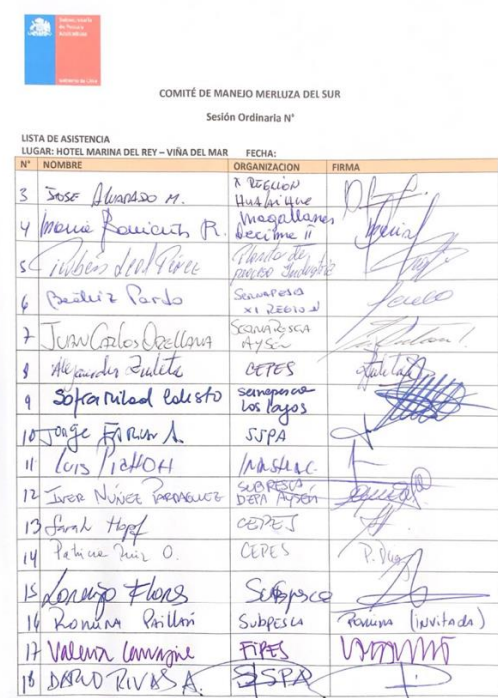 Subsecretaría
de Pesca y
Acuicultura
Gobierno de Chile
COMITÉ DE MANEJO MERLUZA DEL SUR
Sesión Ordinaria N°
LISTA DE ASISTENCIA
LUGAR: HOTEL MARINA DEL REY – VIÑA DEL MAR FECHA:
N° NOMBRE ORGANIZACION FIRMA
3 JOSE ALVARADO M. X REGION HUALAIHUE
4 R. Magallanes
5 Rubén Leal Pérez Planta de proceso Industria
6 Beatriz Pardo SERNAPESCA XI REGION
7 JUAN CARLOS ORELLANA SERNAPESCA AYSÉN
8 Alejandro Zuleta CEPES
9 Sofía Milad Calisto Sernapesca Los Lagos
10 Jorge FARIAS A. SSPA
11 LUIS PICHOTT
12 IVER NÚÑEZ SUBPESCA AYSÉN
13 Sarah Hopf CEPES
14 Patricia Ruiz O. CEPES
15 Lorenzo Flores Subpesca
16 ROMINA PAILLAN SUBPESCA ROMINA (INVITADA)
17 Valeria FIPES
18 DARIO RIVAS A. SSPA